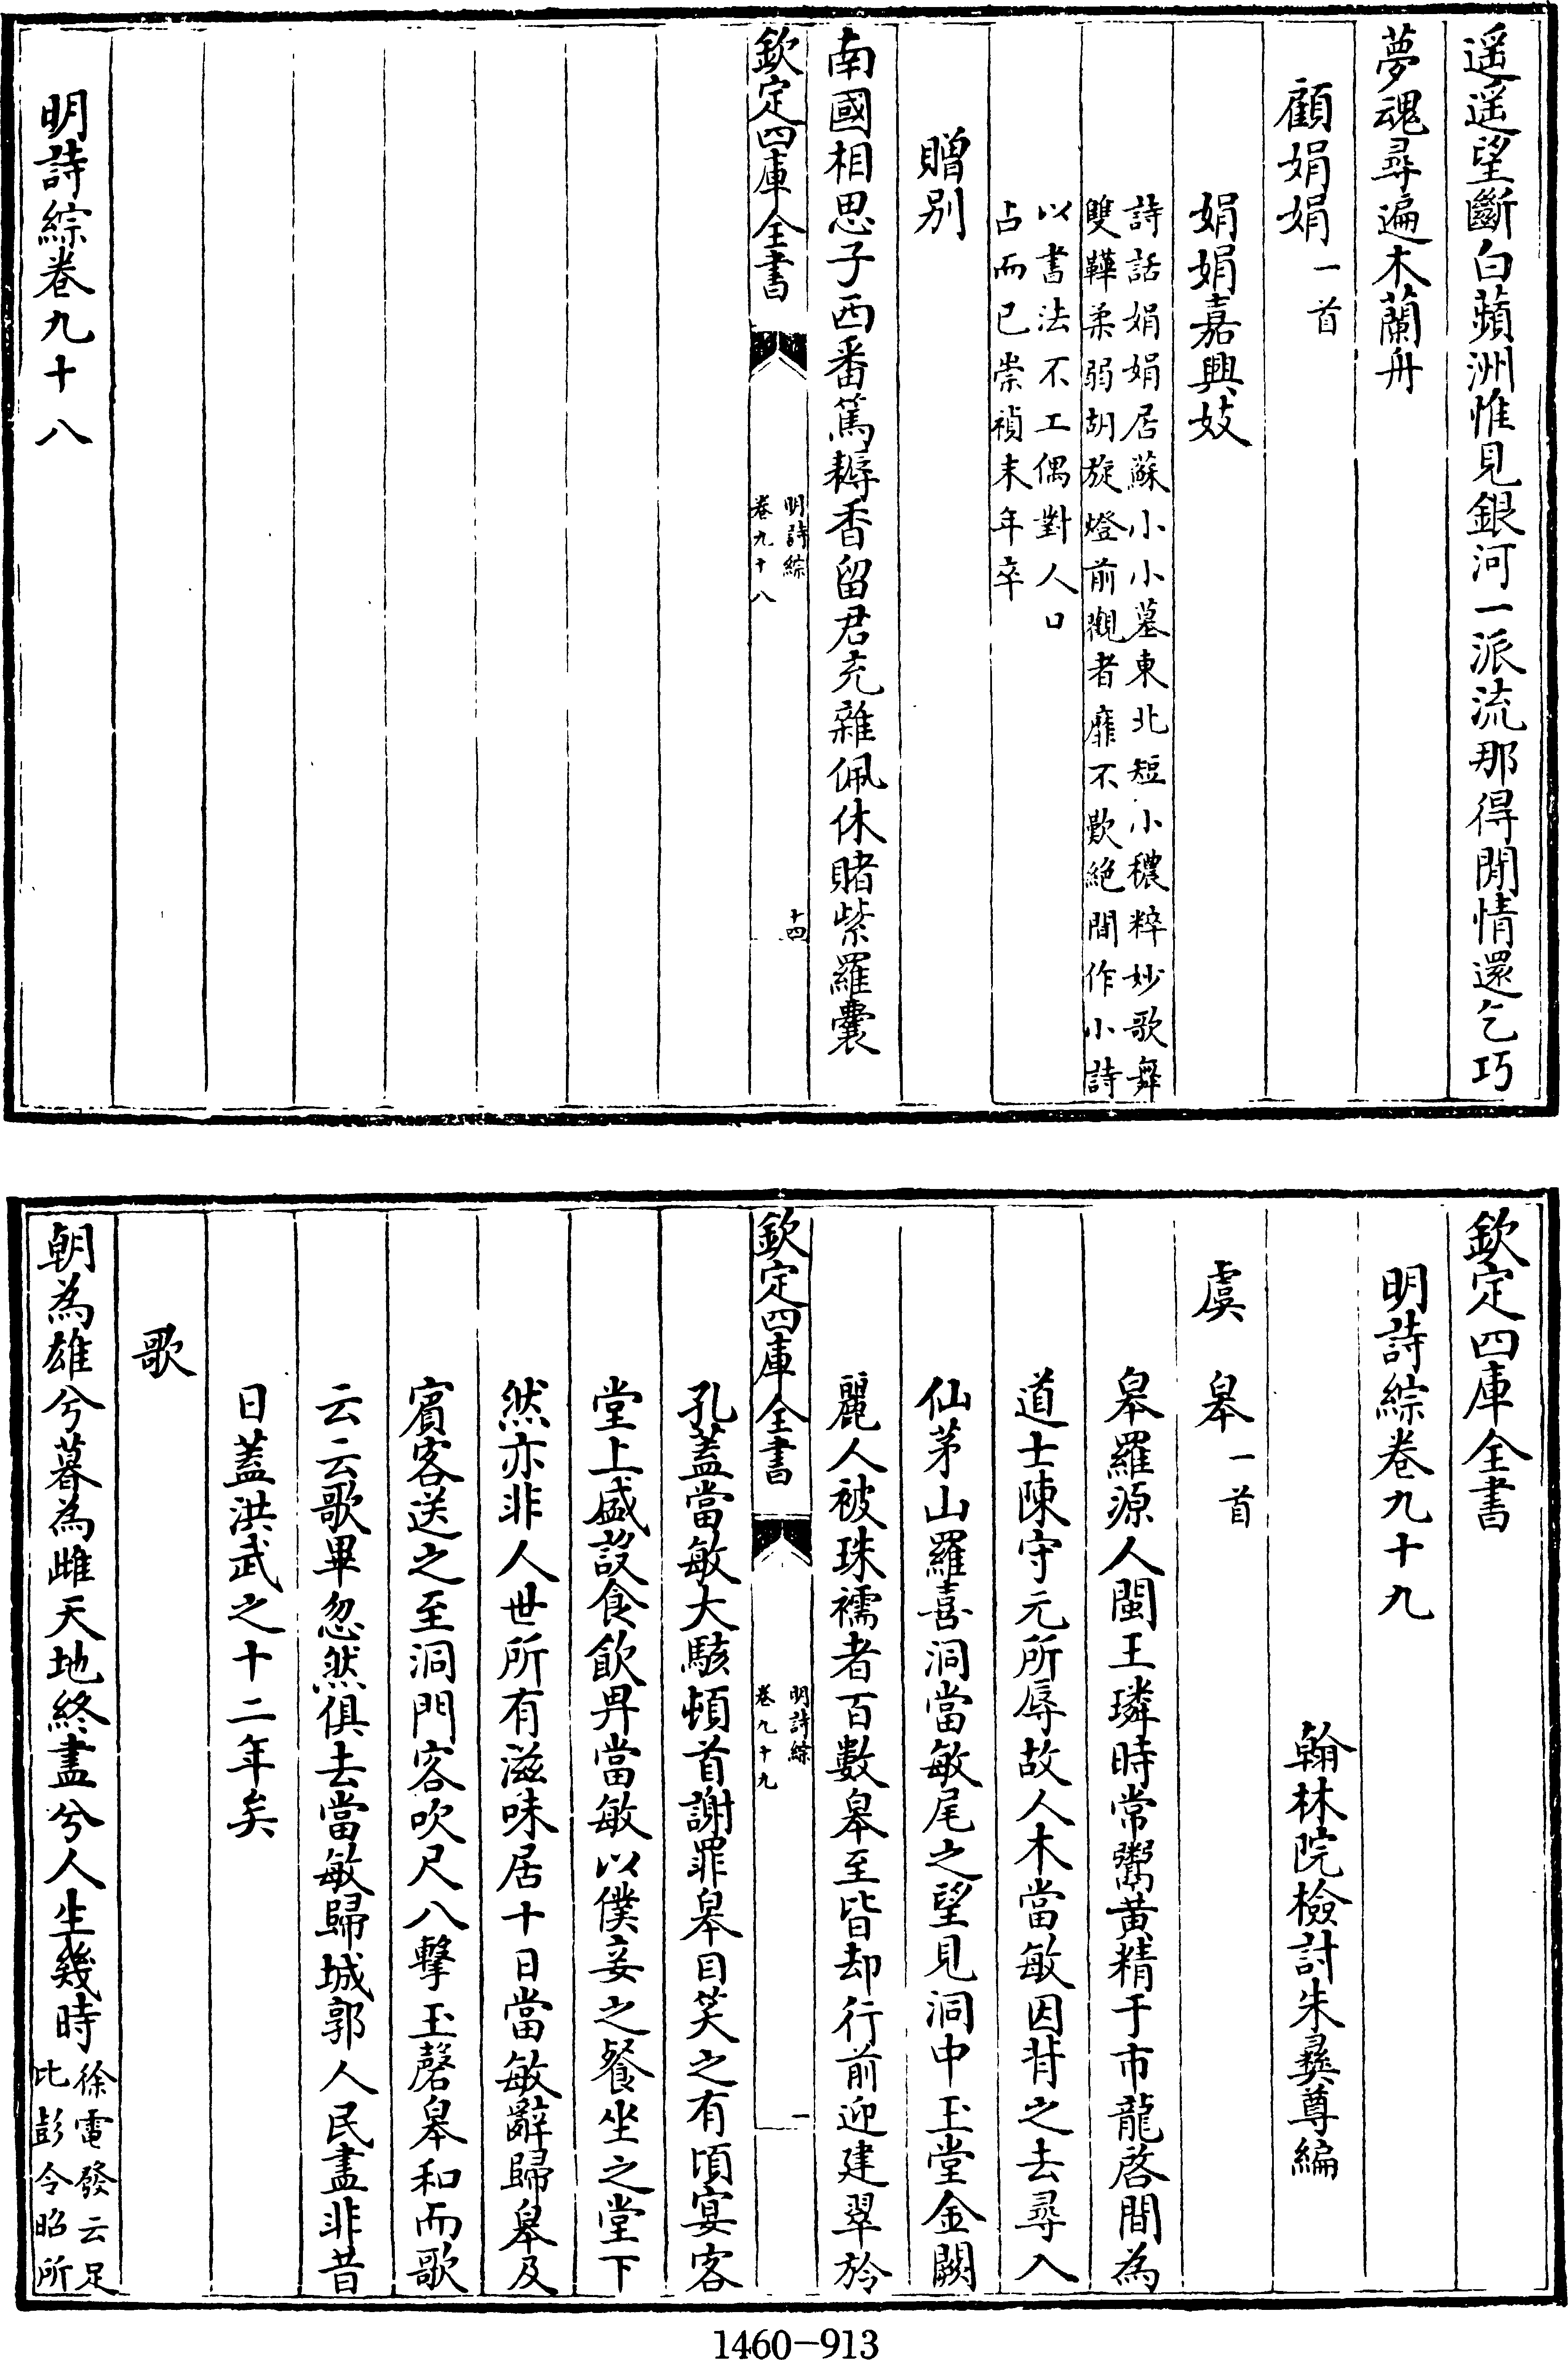 遥遥望斷白蘋洲惟見銀河一派流那得閒情還乞巧
夢魂尋遍木蘭舟
顧娟娟一首
娟娟嘉興妓
詩話娟娟居蘇小小墓東北短小穠粹妙歌舞
雙鞾柔弱胡旋燈前觀者靡不歎絶間作小詩
以書法不工偶對人口
占而已崇禎末年卒
贈别
南國相思子西番篤耨香留君充雜佩休賭紫羅囊
欽定四庫全書
明詩綜
卷九十八
十四
明詩綜卷九十八
欽定四庫全書
明詩綜卷九十九
翰林院檢討朱彞尊編
虞皋一首
皋羅源人閩王璘時常鬻黄精于市龍啓間為
道士陳守元所辱故人木當敏因背之去尋入
仙茅山羅喜洞當敏尾之望見洞中玉堂金闕
麗人被珠襦者百數皋至皆却行前迎建翠於
欽定四庫全書
明詩綜
卷九十九
一
孔蓋當敏大駭頓首謝罪皋目笑之有頃宴客
堂上盛設食飲畀當敏以僕妾之餐坐之堂下
然亦非人世所有滋味居十日當敏辭歸皋及
賓客送之至洞門客吹尺八擊玉磬皋和而歌
云云歌畢忽然俱去當敏歸城郭人民盡非昔
日蓋洪武之十二年矣
歌
朝為雄兮暮為雌天地終盡兮人生幾時徐電發云足
比彭令昭所
1460-913